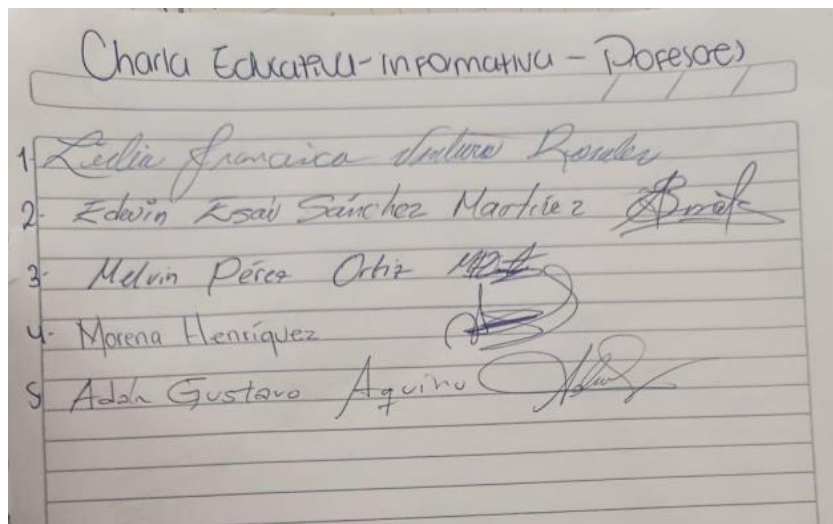 Charla Educativa-informativa - Profesores
1- Lidia Francisca Ventura Rosales
2- Edwin Esaú Sánchez Martínez
3- Melvin Pérez Ortiz
4- Morena Henríquez
5 Adán Gustavo Aquino